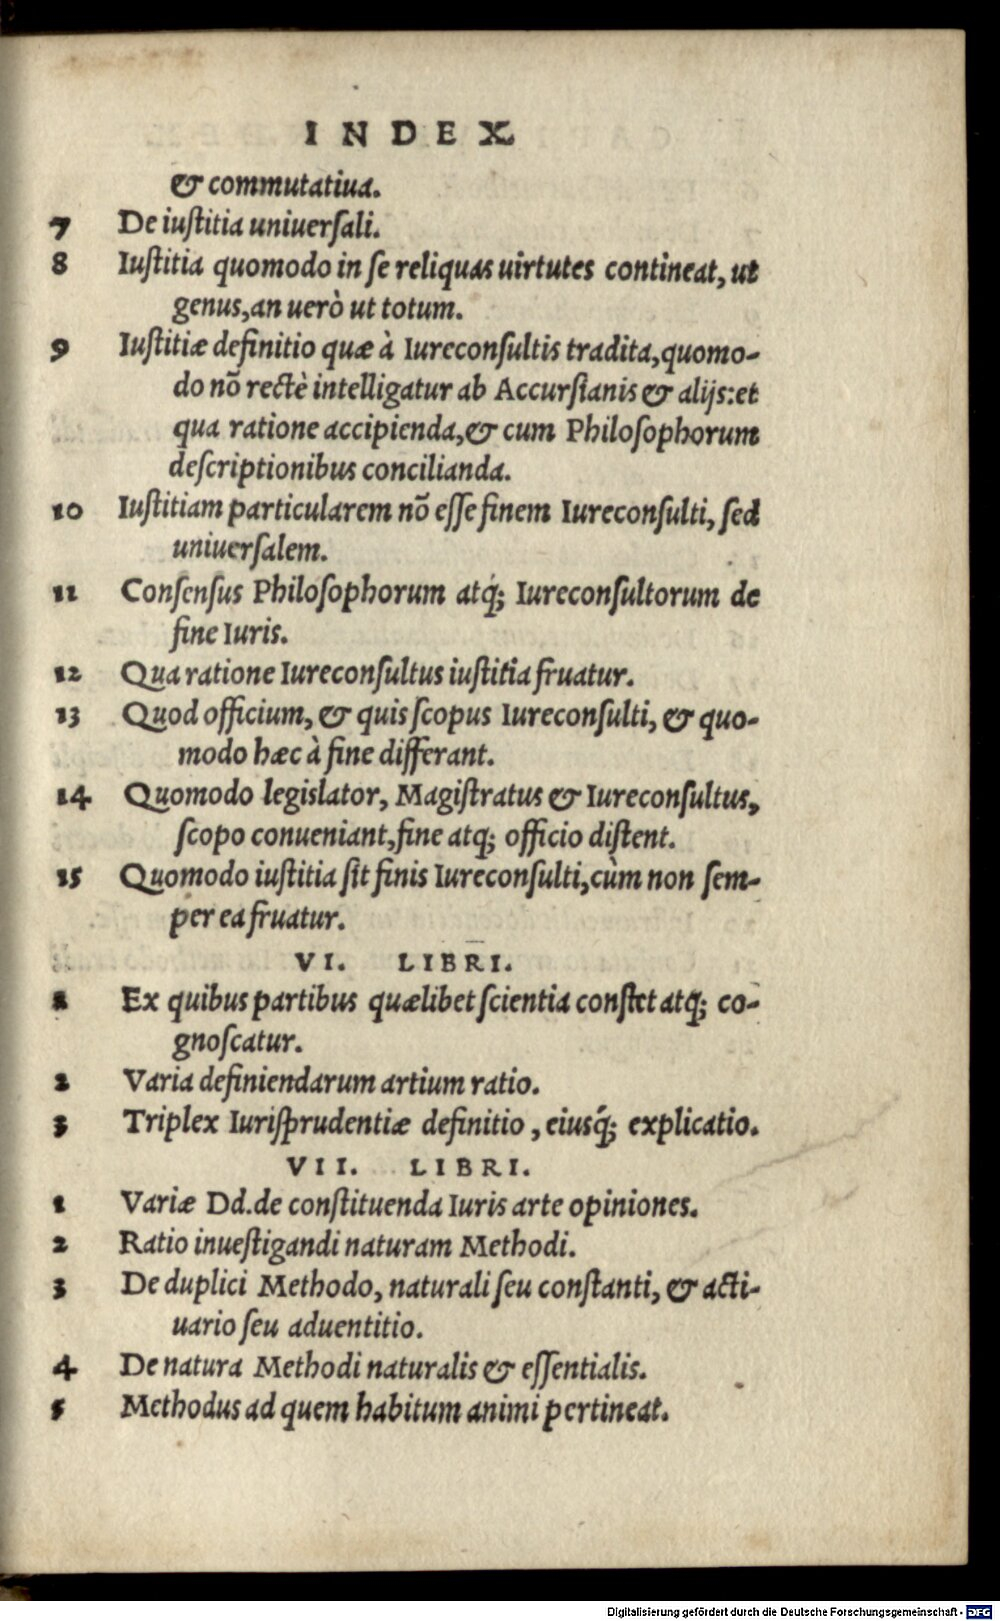 INDEX
& commutatiua.
7 De iuſtitia uniuerſali.
8 Iuſtitia quomodo in ſe reliquas uirtutes contineat, ut
genus, an uerò ut totum.
9 Iuſtitiæ definitio quæ à Iureconſultis tradita, quomo-
do nõ rectè intelligatur ab Accurſianis & alijs: et
qua ratione accipienda, & cum Philoſophorum
deſcriptionibus concilianda.
10 Iuſtitiam particularem nõ eſſe finem Iureconſulti, ſed
uniuerſalem.
11 Conſenſus Philoſophorum atq́; Iureconſultorum de
fine Iuris.
12 Qua ratione Iureconſultus iuſtitia fruatur.
13 Quod officium, & quis ſcopus Iureconſulti, & quo-
modo hæc à fine differant.
14 Quomodo legislator, Magiſtratus & Iureconſultus,
ſcopo conueniant, fine atq; officio diſtent.
15 Quomodo iuſtitia ſit finis Iureconſulti, cùm non ſem-
per ea fruatur.
VI. LIBRI.
1 Ex quibus partibus quælibet ſcientia conſtet atq; co-
gnoſcatur.
2 Varia definiendarum artium ratio.
3 Triplex Iuriſprudentiæ definitio, eiusq́; explicatio.
VII. LIBRI.
1 Variæ Dd. de conſtituenda Iuris arte opiniones.
2 Ratio inueſtigandi naturam Methodi.
3 De duplici Methodo, naturali ſeu conſtanti, & acti-
uario ſeu aduentitio.
4 De natura Methodi naturalis & eſſentialis.
5 Methodus ad quem habitum animi pertineat.
Digitalisierung gefördert durch die Deutsche Forschungsgemeinschaft - DFG